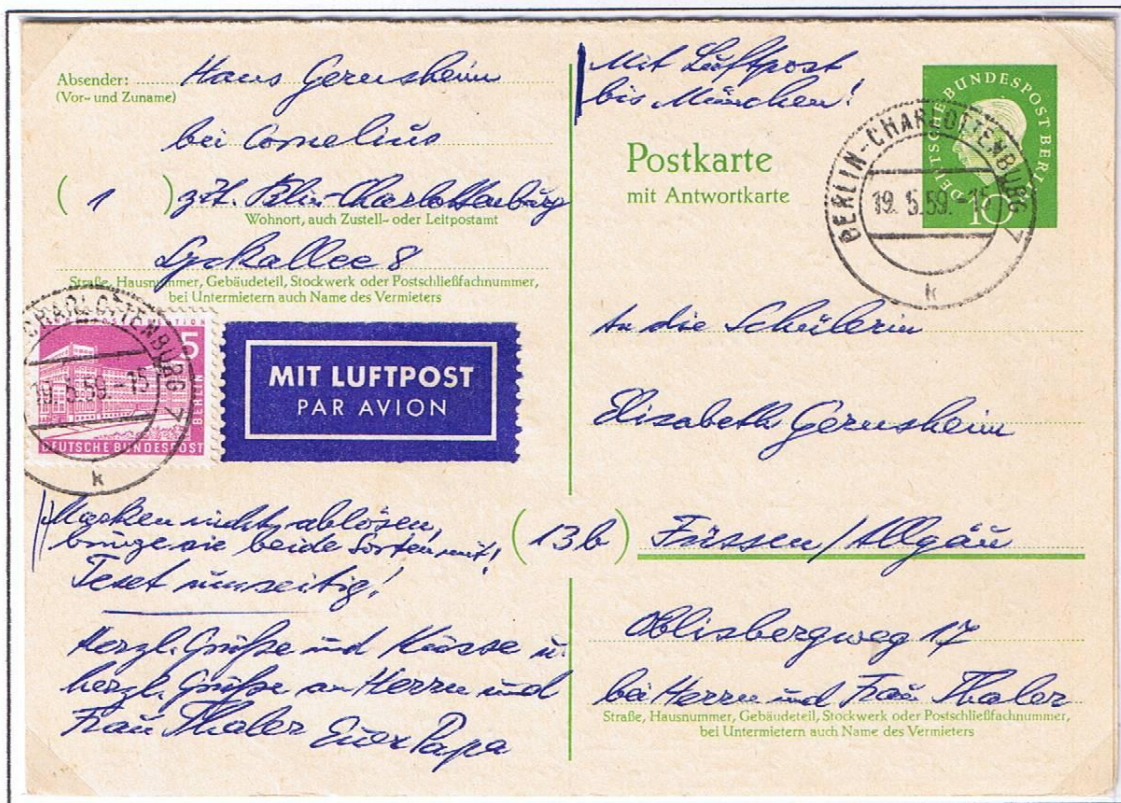 Absender: Hans Gernsheim
(Vor- und Zuname)
bei Cornelius
(1) zzt. Bln-Charlottenburg
Wohnort, auch Zustell- oder Leitpostamt
Lyckallee 8
Straße, Hausnummer, Gebäudeteil, Stockwerk oder Postschließfachnummer,
bei Untermietern auch Name des Vermieters
CHARLOTTENBURG 7
19.5.59.-15
k
5
BERLIN
DEUTSCHE BUNDESPOST
MIT LUFTPOST
PAR AVION
Marken nicht ablösen,
bringe sie beide Sorten mit!
Text umseitig!
Herzl. Grüße und Küsse u.
herzl. Grüße an Herrn und
Frau Thaler Euer Papa
Mit Luftpost
bis München!
Postkarte
mit Antwortkarte
DEUTSCHE BUNDESPOST BERLIN
10
BERLIN-CHARLOTTENBURG 7
19.5.59.-15
k
An die Schülerin
Elisabeth Gernsheim
(13b) Füssen/Allgäu
Oblisbergweg 17
bei Herrn und Frau Thaler
Straße, Hausnummer, Gebäudeteil, Stockwerk oder Postschließfachnummer,
bei Untermietern auch Name des Vermieters